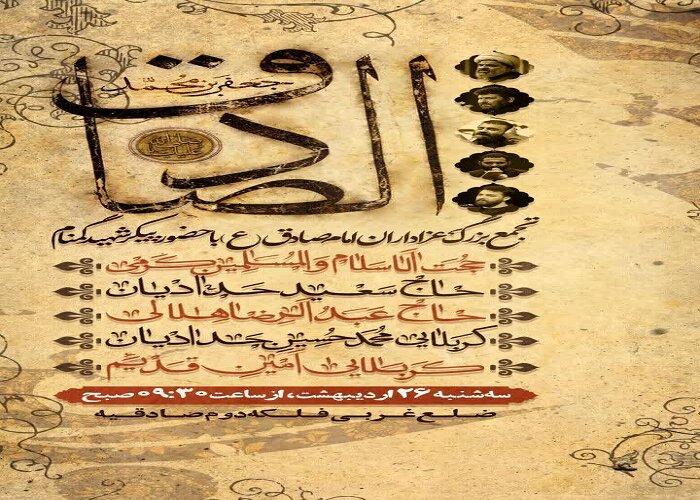 جعفر بن محمد
الصادق
تجمع بزرگ عزاداران امام صادق (ع) با حضور پیکر شهید گمنام
حجت الاسلام والمسلمین کرمی
حاج سعید حدادیان
حاج عبدالرضا هلالی
کربلایی محمدحسین حدادیان
کربلایی امین قدیم
سه‌شنبه ۲۶ اردیبهشت، از ساعت ۰۹:۳۰ صبح
ضلع غربی فلکه دوم صادقیه